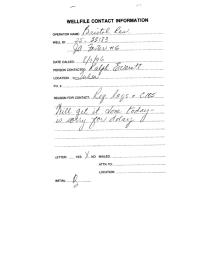 WELLFILE CONTACT INFORMATION
OPERATOR NAME: Bristol Res
WELL ID: 35-
J.A. Foster #6
DATE CALLED:
PERSON CONTACTED: Ralph Everett
LOCATION: Tulsa
TO: #
REASON FOR CONTACT: Req. logs +
Will get it done today-
is sorry for delay
LETTER: YES X NO MAILED:
ATTN TO:
LOCATION:
INITIAL: